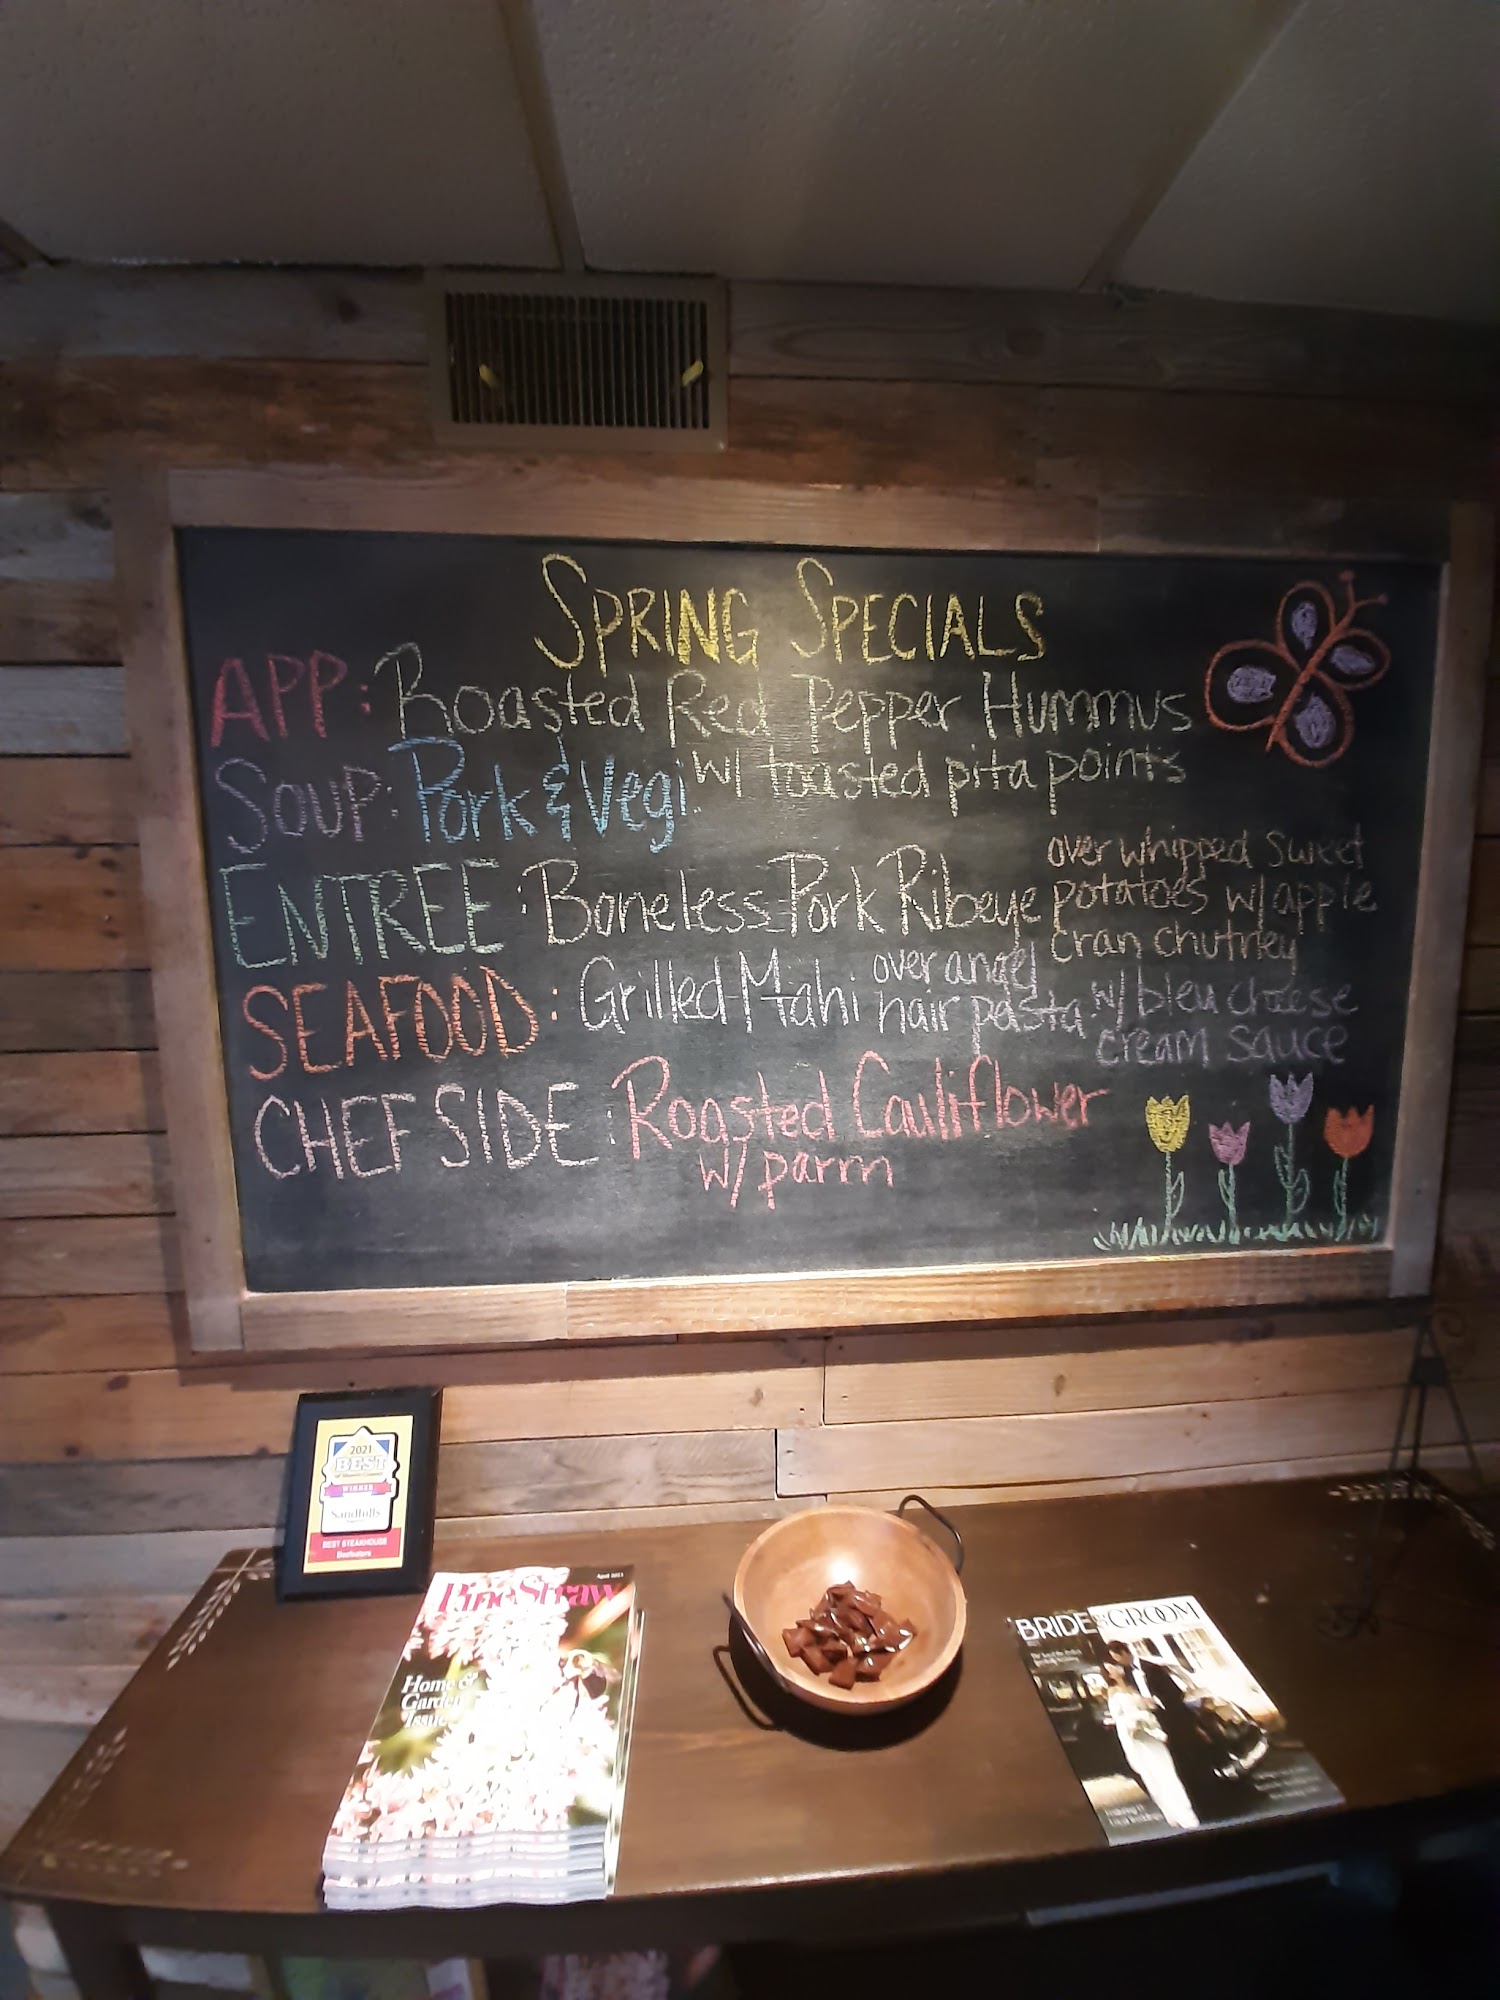 SPRING SPECIALS
APP: Roasted Red Pepper Hummus
w/ toasted pita points
SOUP: Pork & Vegi
ENTREE: Boneless Pork Ribeye
over whipped sweet
potatoes w/ apple
cran chutney
SEAFOOD: Grilled Mahi
over angel
hair pasta
w/ bleu cheese
cream sauce
CHEF SIDE: Roasted Cauliflower
w/ parm
2021
BEST
WINNER
Sandhills
BEST STEAKHOUSE
Beefeaters
PineStraw
Home &
Garden
Issue
BRIDE & GROOM